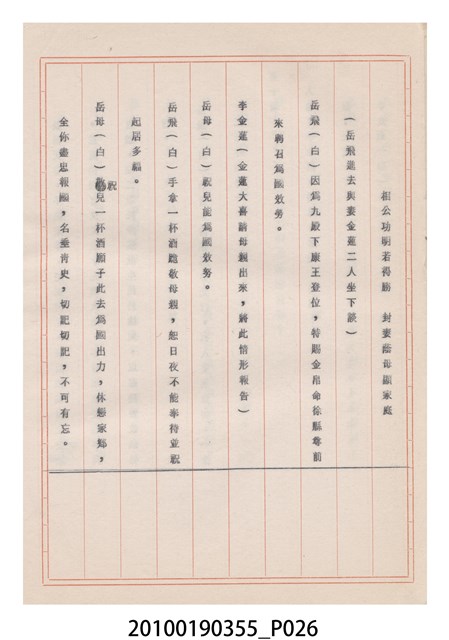 相公功明若得勝　封妻蔭母顯家庭
（岳飛進去與妻金蓮二人坐下談）
岳飛（白）因為九殿下康王登位，特賜金帛命徐縣尊前
來聘召為國效勞。
李金蓮（金蓮大喜請母親出來，將此情形報告）
岳母（白）祝兒國為國效勞。
岳飛（白）手拿一杯酒跪敬母親，恕日夜不能奉侍並祝
起居多福。
岳母（白）敬祝兒一杯酒願子此去為國出力，休戀家鄉，
全你盡忠報國，名垂青史，切記切記，不可有忘。
20100190355_P026